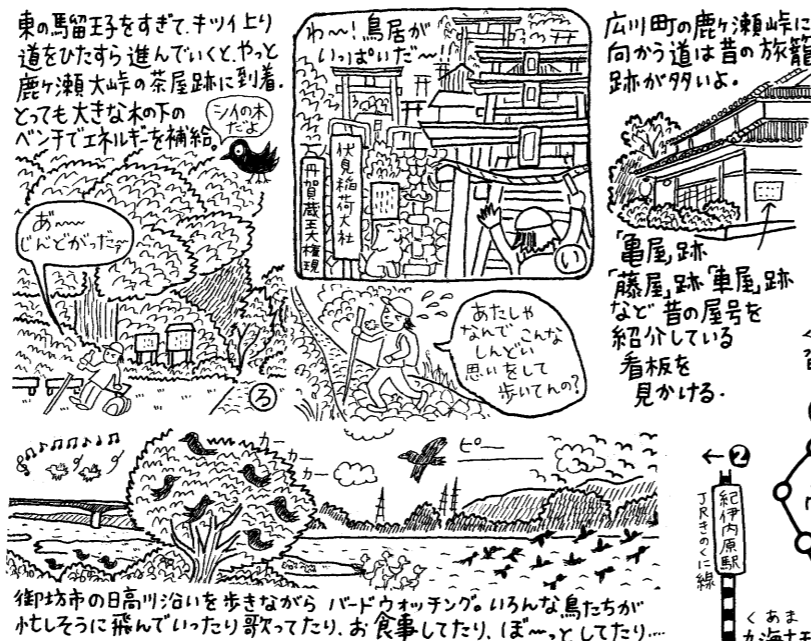 東の馬留王子をすぎて、キツイ上り
道をひたすら進んでいくと、やっと
鹿ケ瀬大峠の茶屋跡に到着.
とっても大きな木の下の
ベンチでエネルギーを補給。
シイの木
だよ
あ〜〜
しんどかったぁ
ろ
わ〜!鳥居が
いっぱいだ〜
伏見稲荷大社
丹賀蔵王大権現
い
あたしゃ
なんで こんな
しんどい
思いをして
歩いてんの?
広川町の鹿ケ瀬峠に
向かう道は昔の旅籠
跡が多いよ.
「亀屋」跡
「藤屋」跡「車屋」跡
など昔の屋号を
紹介している
看板を
見かける.
カー
カー
カー
ピー
御坊市の日高川沿いを歩きながら バードウォッチング。いろんな鳥たちが
忙しそうに飛んでいったり歌ってたり、お食事してたり、ぼ〜っとしてたり…
←❷
紀伊内原駅
JRきのくに線
くあま